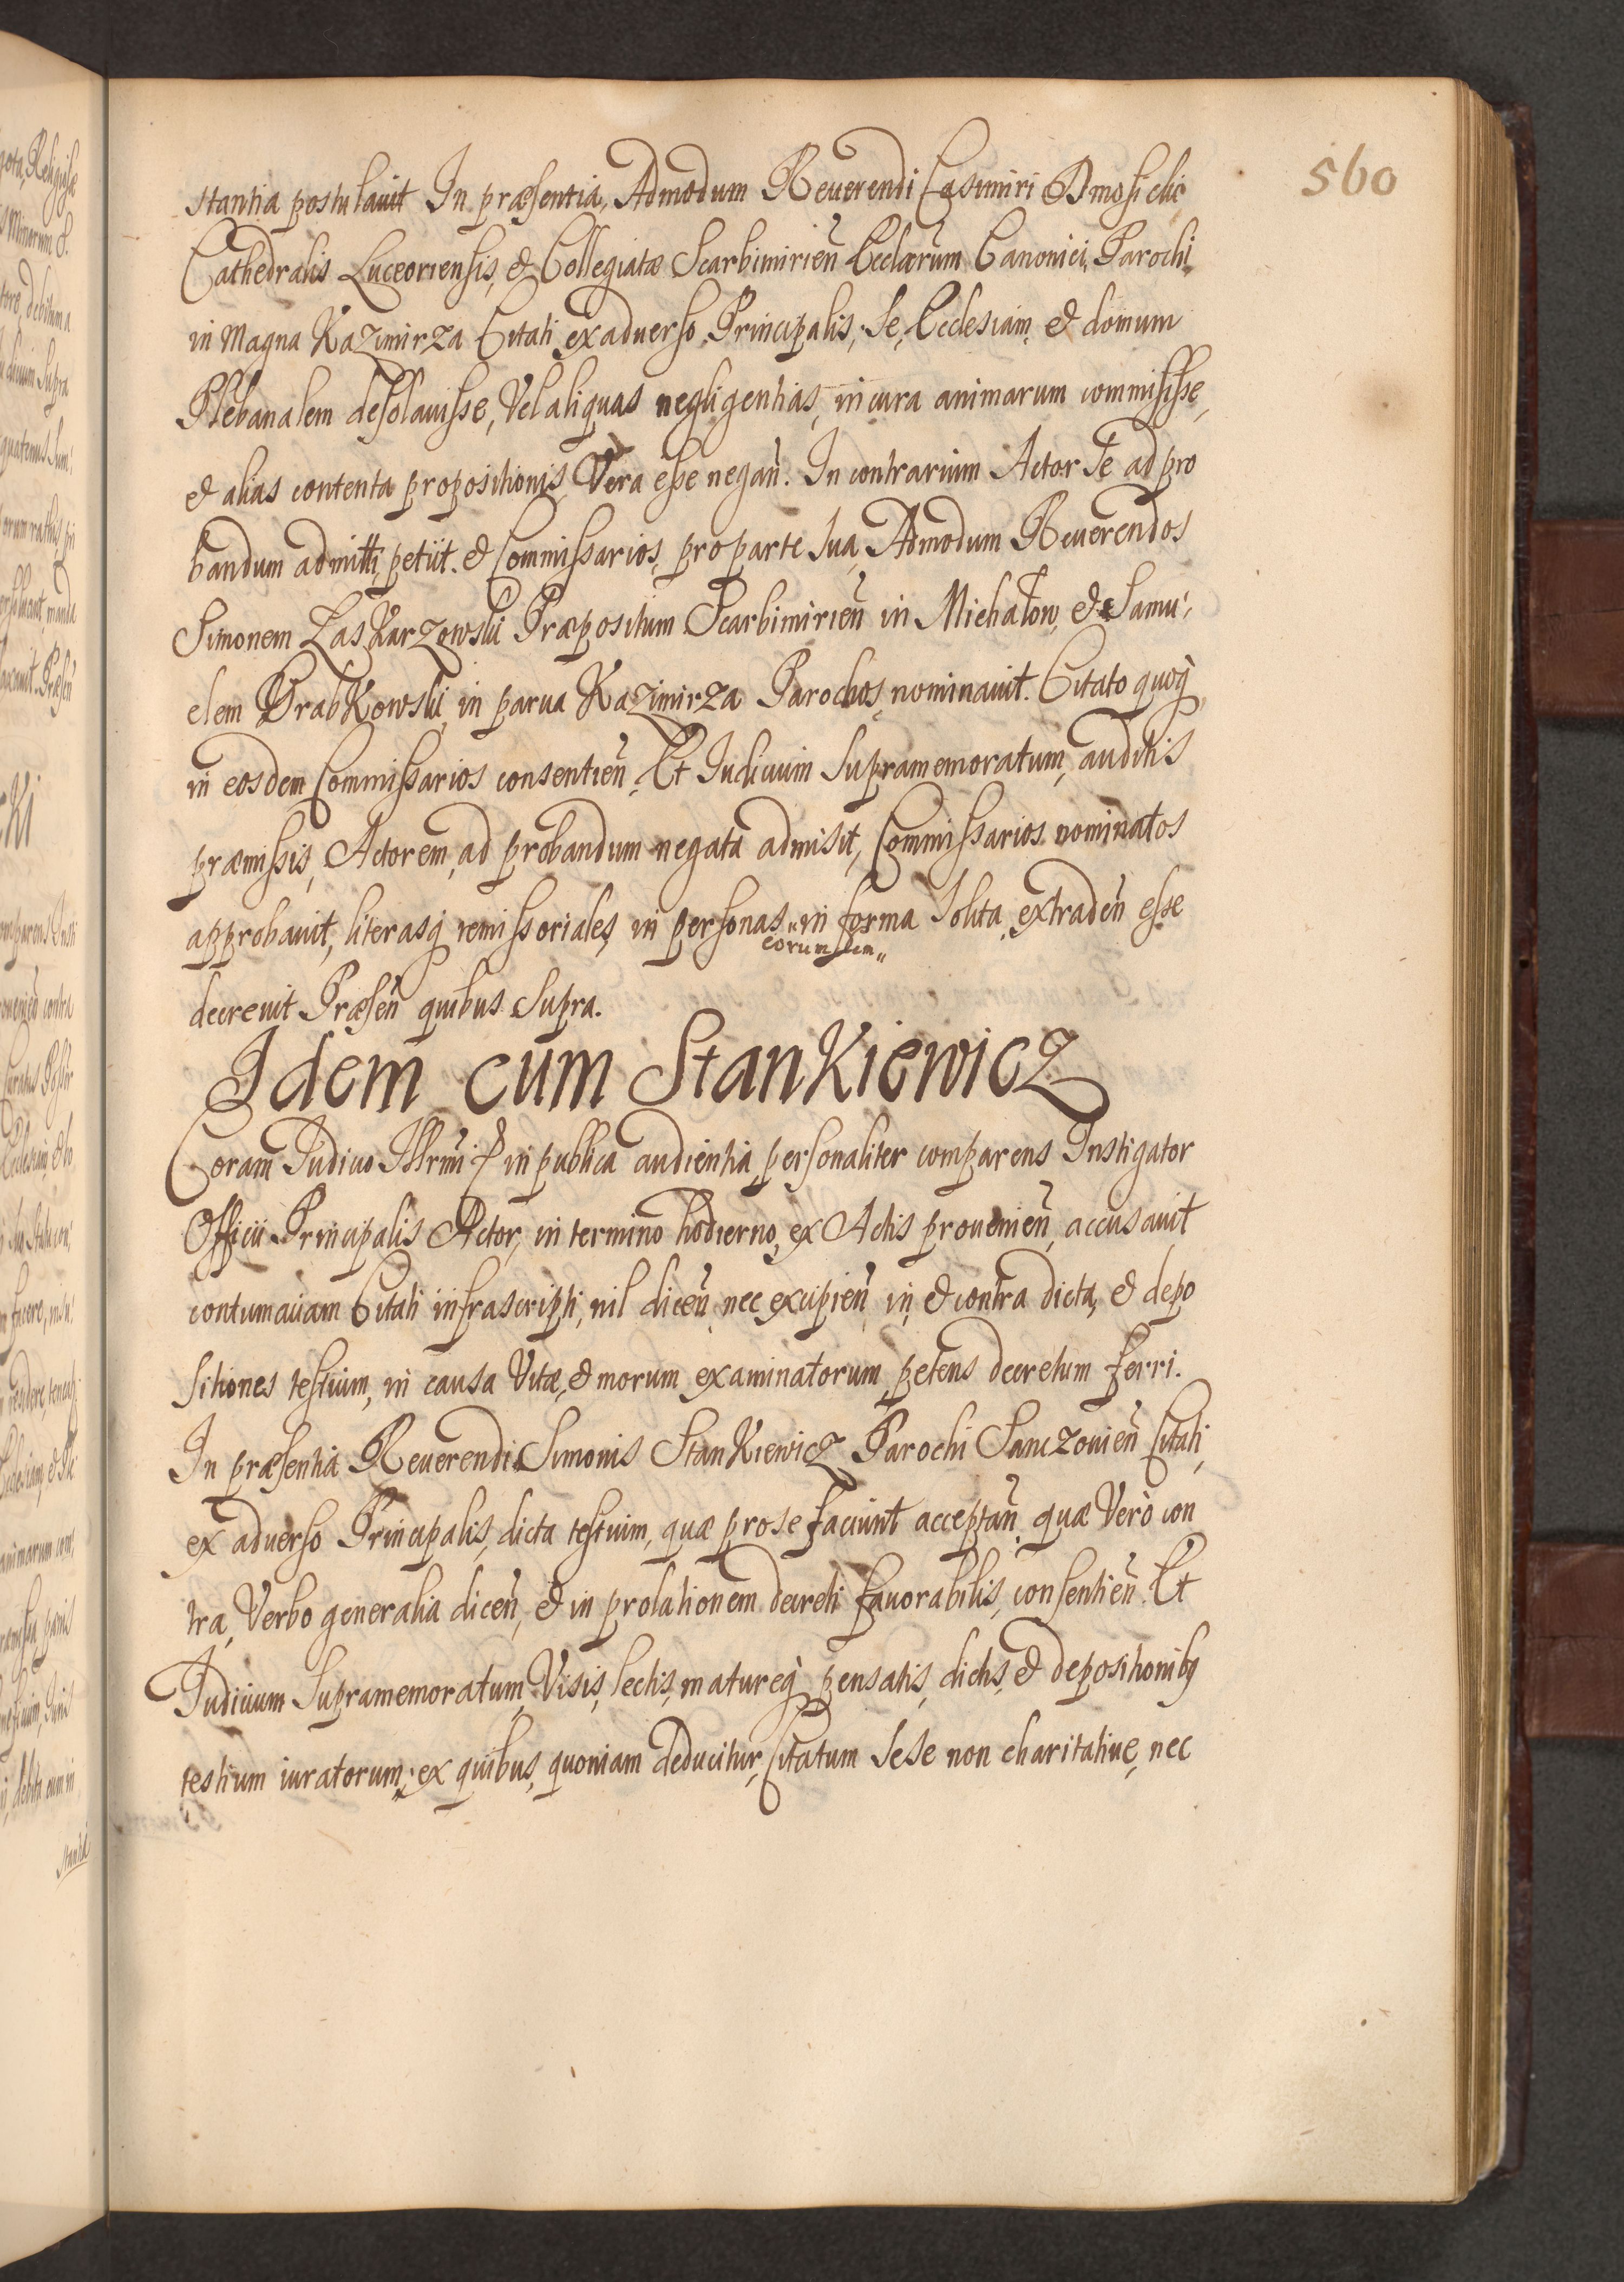 560
stantia postulauit In præsentia, Admodum Reuerendi Casimiri Dmosiclic
Cathedralis Luceoriensis, & Collegiatæ Scarbimirien̄ Ecclarum Canonici, Parochi
in Magna Kazimirza Citati ex aduerso Principalis, Se, Ecclesiam, & domum
Plebanalem desolauisse, Vel aliquas negligentias, in cura animarum commisisse,
& alias contenta propositionis Vera esse negan̄. In contrarium Actor Se ad pro
bandum admitti, petiit. & Commissarios, pro parte sua, Admodum Reuerendos
Simonem Laskarzowski Præpositum Scarbimirien̄ in Michałow, & Samu:
elem Drabkowski, in parua Kazimirza Parochos nominauit. Citato quoq̀
in eosdem Commissarios consentien̄. Et Iudicium Supramemoratum, auditis
præmissis, Actorem, ad probandum negata admisit, Commissarios nominatos
approbauit, literasq̀ remissoriales, in personas " in forma Solita, extraden̄ esse
eorumdem"
decreuit Præsen̄ quibus Supra.
Idem cum Stankiewicz
Coram Iudicio Illrmi & in publica audientia, personaliter comparens Instigator
Officii Principalis Actor, in termino hodierno, ex Actis prouenien̄, accusauit
contumaciam Citati infrascripti, nil dicen̄, nec excipien̄ in, & contra dicta, & depo
sitiones testium, in causa Vitæ, & morum examinatorum, petens decretum ferri.
In præsentia Reuerendi Simonis Stankiewicz Parochi Sanczouien̄ Citati,
ex aduerso Principalis, dicta testium, quæ pro se faciunt acceptan̄, quæ Verò con
tra, Verbo generalia dicen̄, & in prolationem decreti fauorabilis, consentien̄. Et
Iudicium Supramemoratum, Visis, lectis, matureq̀ pensatis, dictis, & depositionibꝰ
testium iuratorum, ex quibus, quoniam deducitur, Citatum Sese non charitatiue, nec